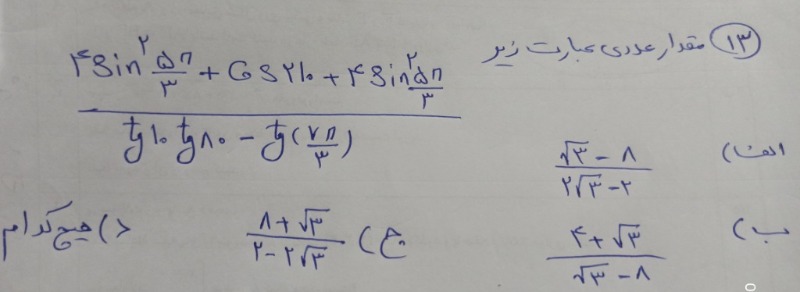 ۱۳) مقدار عددی عبارت زیر
۴Sin²۵π/۳ + Cos۲۱۰ + ۴Sin²۵π/۳
tg۱۰ tg۸۰ - tg(۷π/۳)
الف) √۳ - ۸ / ۲√۳ - ۲
ب) ۴ + √۳ / √۳ - ۸
ج) ۸ + √۳ / ۲ - ۲√۳
د) هیچ کدام